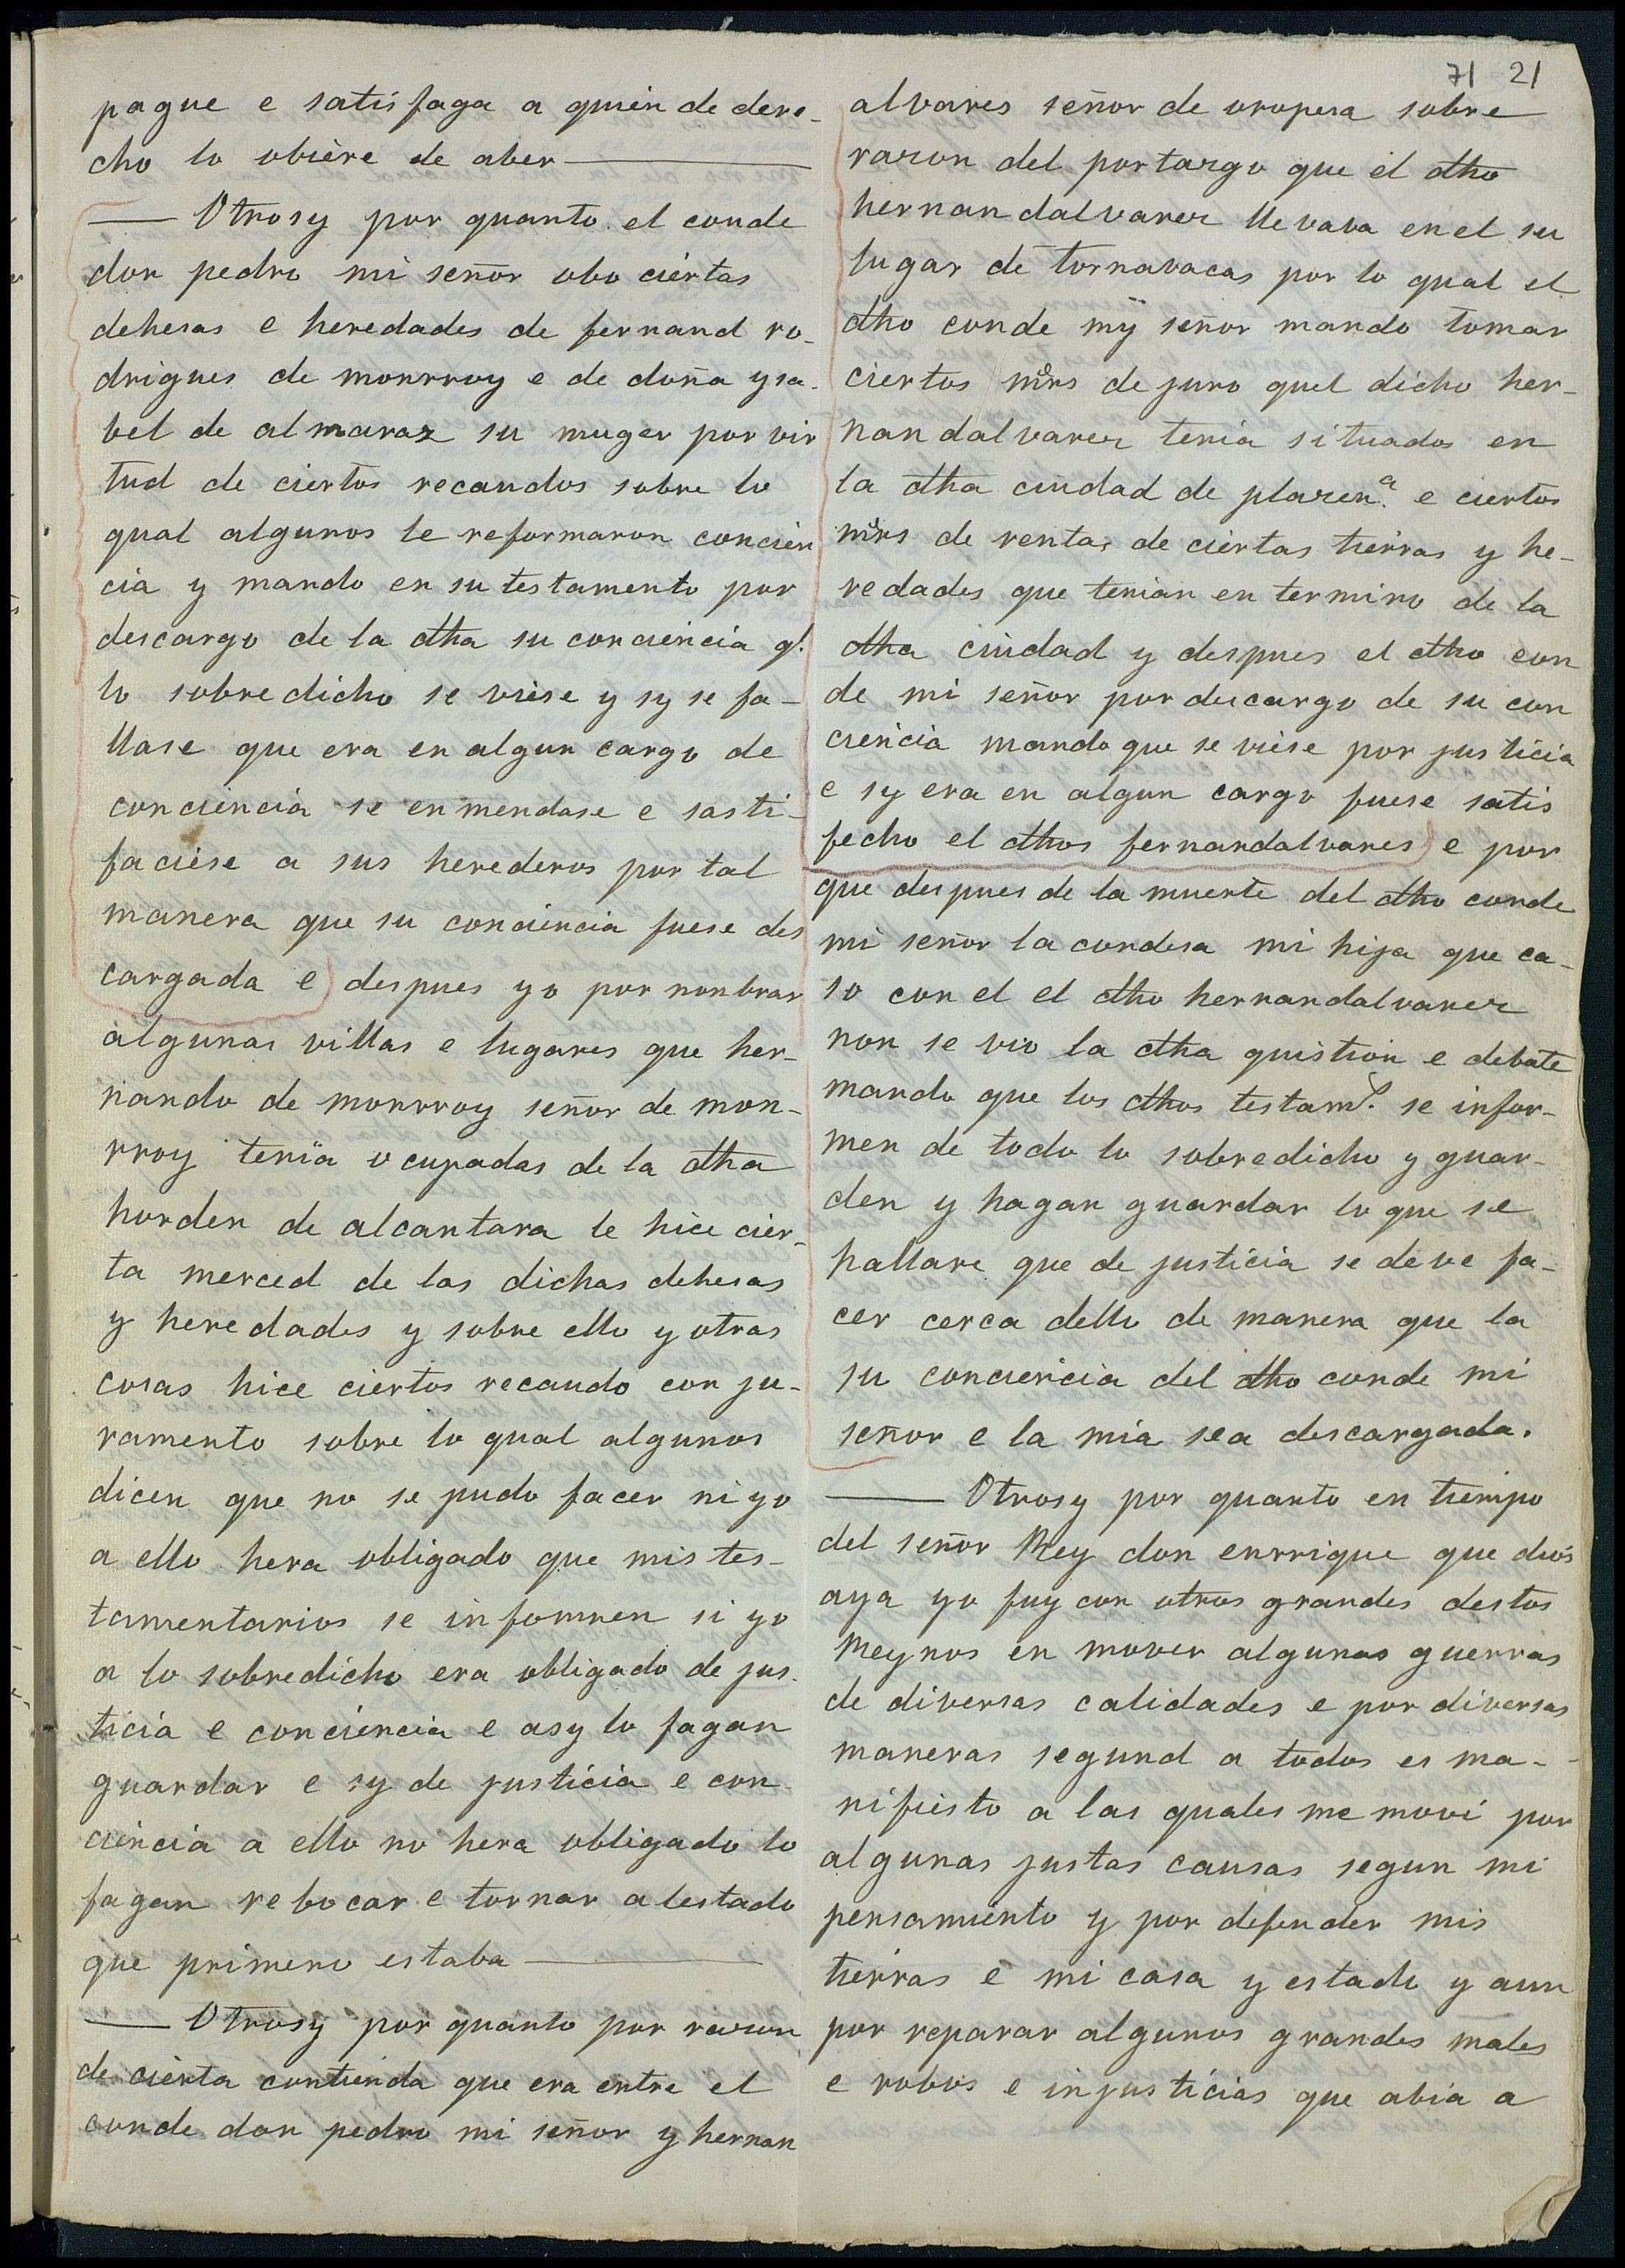 71 21
pague e satisfaga a quien de dere-
cho lo obiere de aber
Otrosy por quanto el conde
don pedro mi señor obo ciertas
dehesas e heredades de fernand ro-
drigues de monrroy e de doña ysa-
bel de almaraz su muger por vir
tud de ciertos recaudos sobre lo
qual algunos le reformaron concien
cia y mando en su testamento por
descargo de la dha su conciencia q.
lo sobre dicho se viese y sy se fa-
llase que era en algun cargo de
conciencia se enmendase e sasti-
faciese a sus herederos por tal
manera que su conciencia fuese des
cargada e) despues yo por nonbrar
algunas villas e lugares que her-
nando de monrroy señor de mon-
rroy tenia ocupadas de la dha
horden de alcantara le hice cier-
ta merced de las dichas dehesas
y heredades y sobre ello y otras
cosas hice ciertos recaudo con ju-
ramento sobre lo qual algunos
dicen que no se pudo facer ni yo
a ello hera obligado que mis tes-
tamentarios se infomren si yo
a lo sobredicho era obligado de jus-
ticia e conciencia e asy lo fagan
guardar e sy de justicia e con
ciencia a ello no hera obligado lo
fagan rebocar e tornar al estado
que primero estaba
Otrosy por quanto por razon
de cierta contienda que era entre el
conde don pedro mi señor y hernan
alvares señor de oropesa sobre
razon del portazgo que el dho
hernandalvarez llevava en el su
lugar de tornavacas por lo qual el
dho conde mÿ señor mando tomar
ciertos mrs de juro quel dicho her-
nandalvarez tenia situados en
la dha ciudad de plazena e ciertos
mrs de renta de ciertas tierras y he-
redades que tenian en termino de la
dha ciudad y despues el dho con
de mi señor por descargo de su con
ciencia mando que se viese por justicia
e sy era en algun cargo fuese satis
fecho el dhos fernandalvares) e por
que despues de la muerte del dho conde
mi señor la condesa mi hija que ca-
so con el el dho hernandalvarez
non se vio la dha quistion e debate
mando que los dhos testams. se infor-
men de todo lo sobredicho y guar-
den y hagan guardar lo que se
hallare que de justicia se deve fa-
cer cerca dello de manera que la
su conciencia del dho conde mi
señor e la mia sea descargada.
Otrosy por quanto en tiempo
del señor Rey don enrrique que dios
aya yo fuy con otros grandes destos
Reynos en mover algunas guerras
de diversas calidades e por diversas
maneras segund a todos es ma-
nifiesto a las quales me movi por
algunas justas causas segun mi
pensamiento y por defender mis
tierras e mi casa y estado y aun
por reparar algunos grandes males
e robos e injusticias que abia a